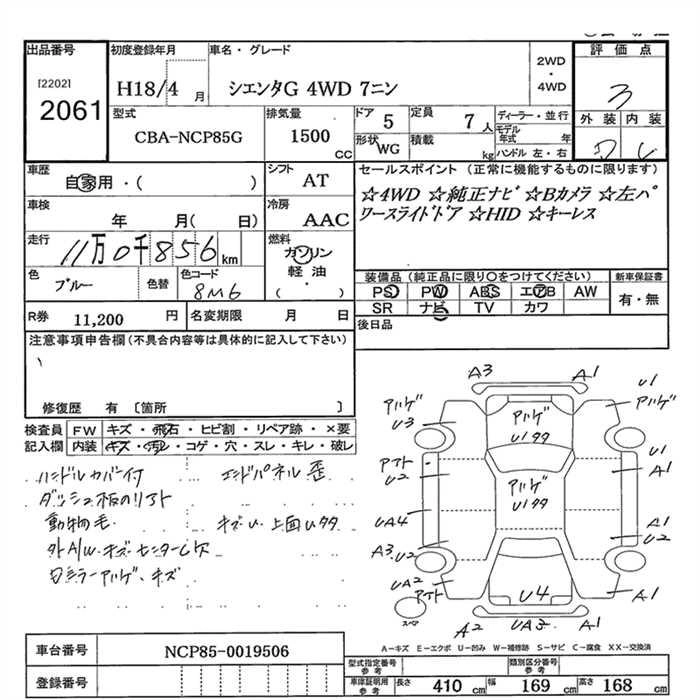 出品番号
[2202]
2061
初度登録年月
H18/4 月
車名・グレード
シエンタG 4WD 7ニン
2WD
・
4WD
評価点
3
型式
CBA-NCP85G
排気量
1500
cc
ドア 5
形状 WG
定員 7 人
積載 kg
ディーラー・並行
モデル年式 年
ハンドル 左・右
外装 内装
車歴
自家用・( )
シフト
AT
車検
年 月( 日)
冷房
AAC
走行
11万0千856km
燃料
ガソリン
軽油
・
( )
色
ブルー
色替
色コード
8M6
セールスポイント (正常に機能するものに限ります)
☆4WD ☆純正ナビ ☆Bカメラ ☆左パ
ワースライドドア ☆HID ☆キーレス
装備品 (純正品に限り〇をつけてください)
PS PW ABS エアB AW
SR ナビ TV カワ
新車保証書
有・無
R券 11,200 円
名変期限 月 日
後日品
注意事項申告欄(不具合内容等は具体的に記入して下さい)
修復歴 有 〔箇所 〕
検査員 FW キズ・飛石・ヒビ割・リペア跡・×要
記入欄 内装 キズ・汚レ・コゲ・穴・スレ・キレ・破レ
ハンドルカバー付 エンドパネル歪
ダッシュ板のリフト
動物毛. キズU. 上面Uタタ
外A/W.キズ.センターレス
ミラーアハゲ、キズ
A3 A1
アハゲ U3
アハゲ U1タタ
U1 アハゲ
アアト U2
U1 A1
アハゲ U1タタ
UA4
A1 U2
A3 U2
UA2 アアト
U4
A1
スペア
A2 UA3 A1
A−キズ E−エクボ U−凹み W−補修跡 S−サビ C−腐食 XX−交換済
車台番号 NCP85-0019506
登録番号
型式指定番号 参考
類別区分番号 参考
車庫証明用 参考 長さ 410 cm 幅 169 cm 高さ 168 cm